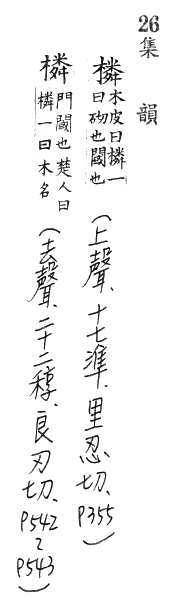 26
集韻
橉木皮曰橉一曰砌也閾也（上聲、十七準、里忍切、P355）
橉門閾也楚人曰橉一曰木名（去聲、二十二稕、良刃切、P542~P543）